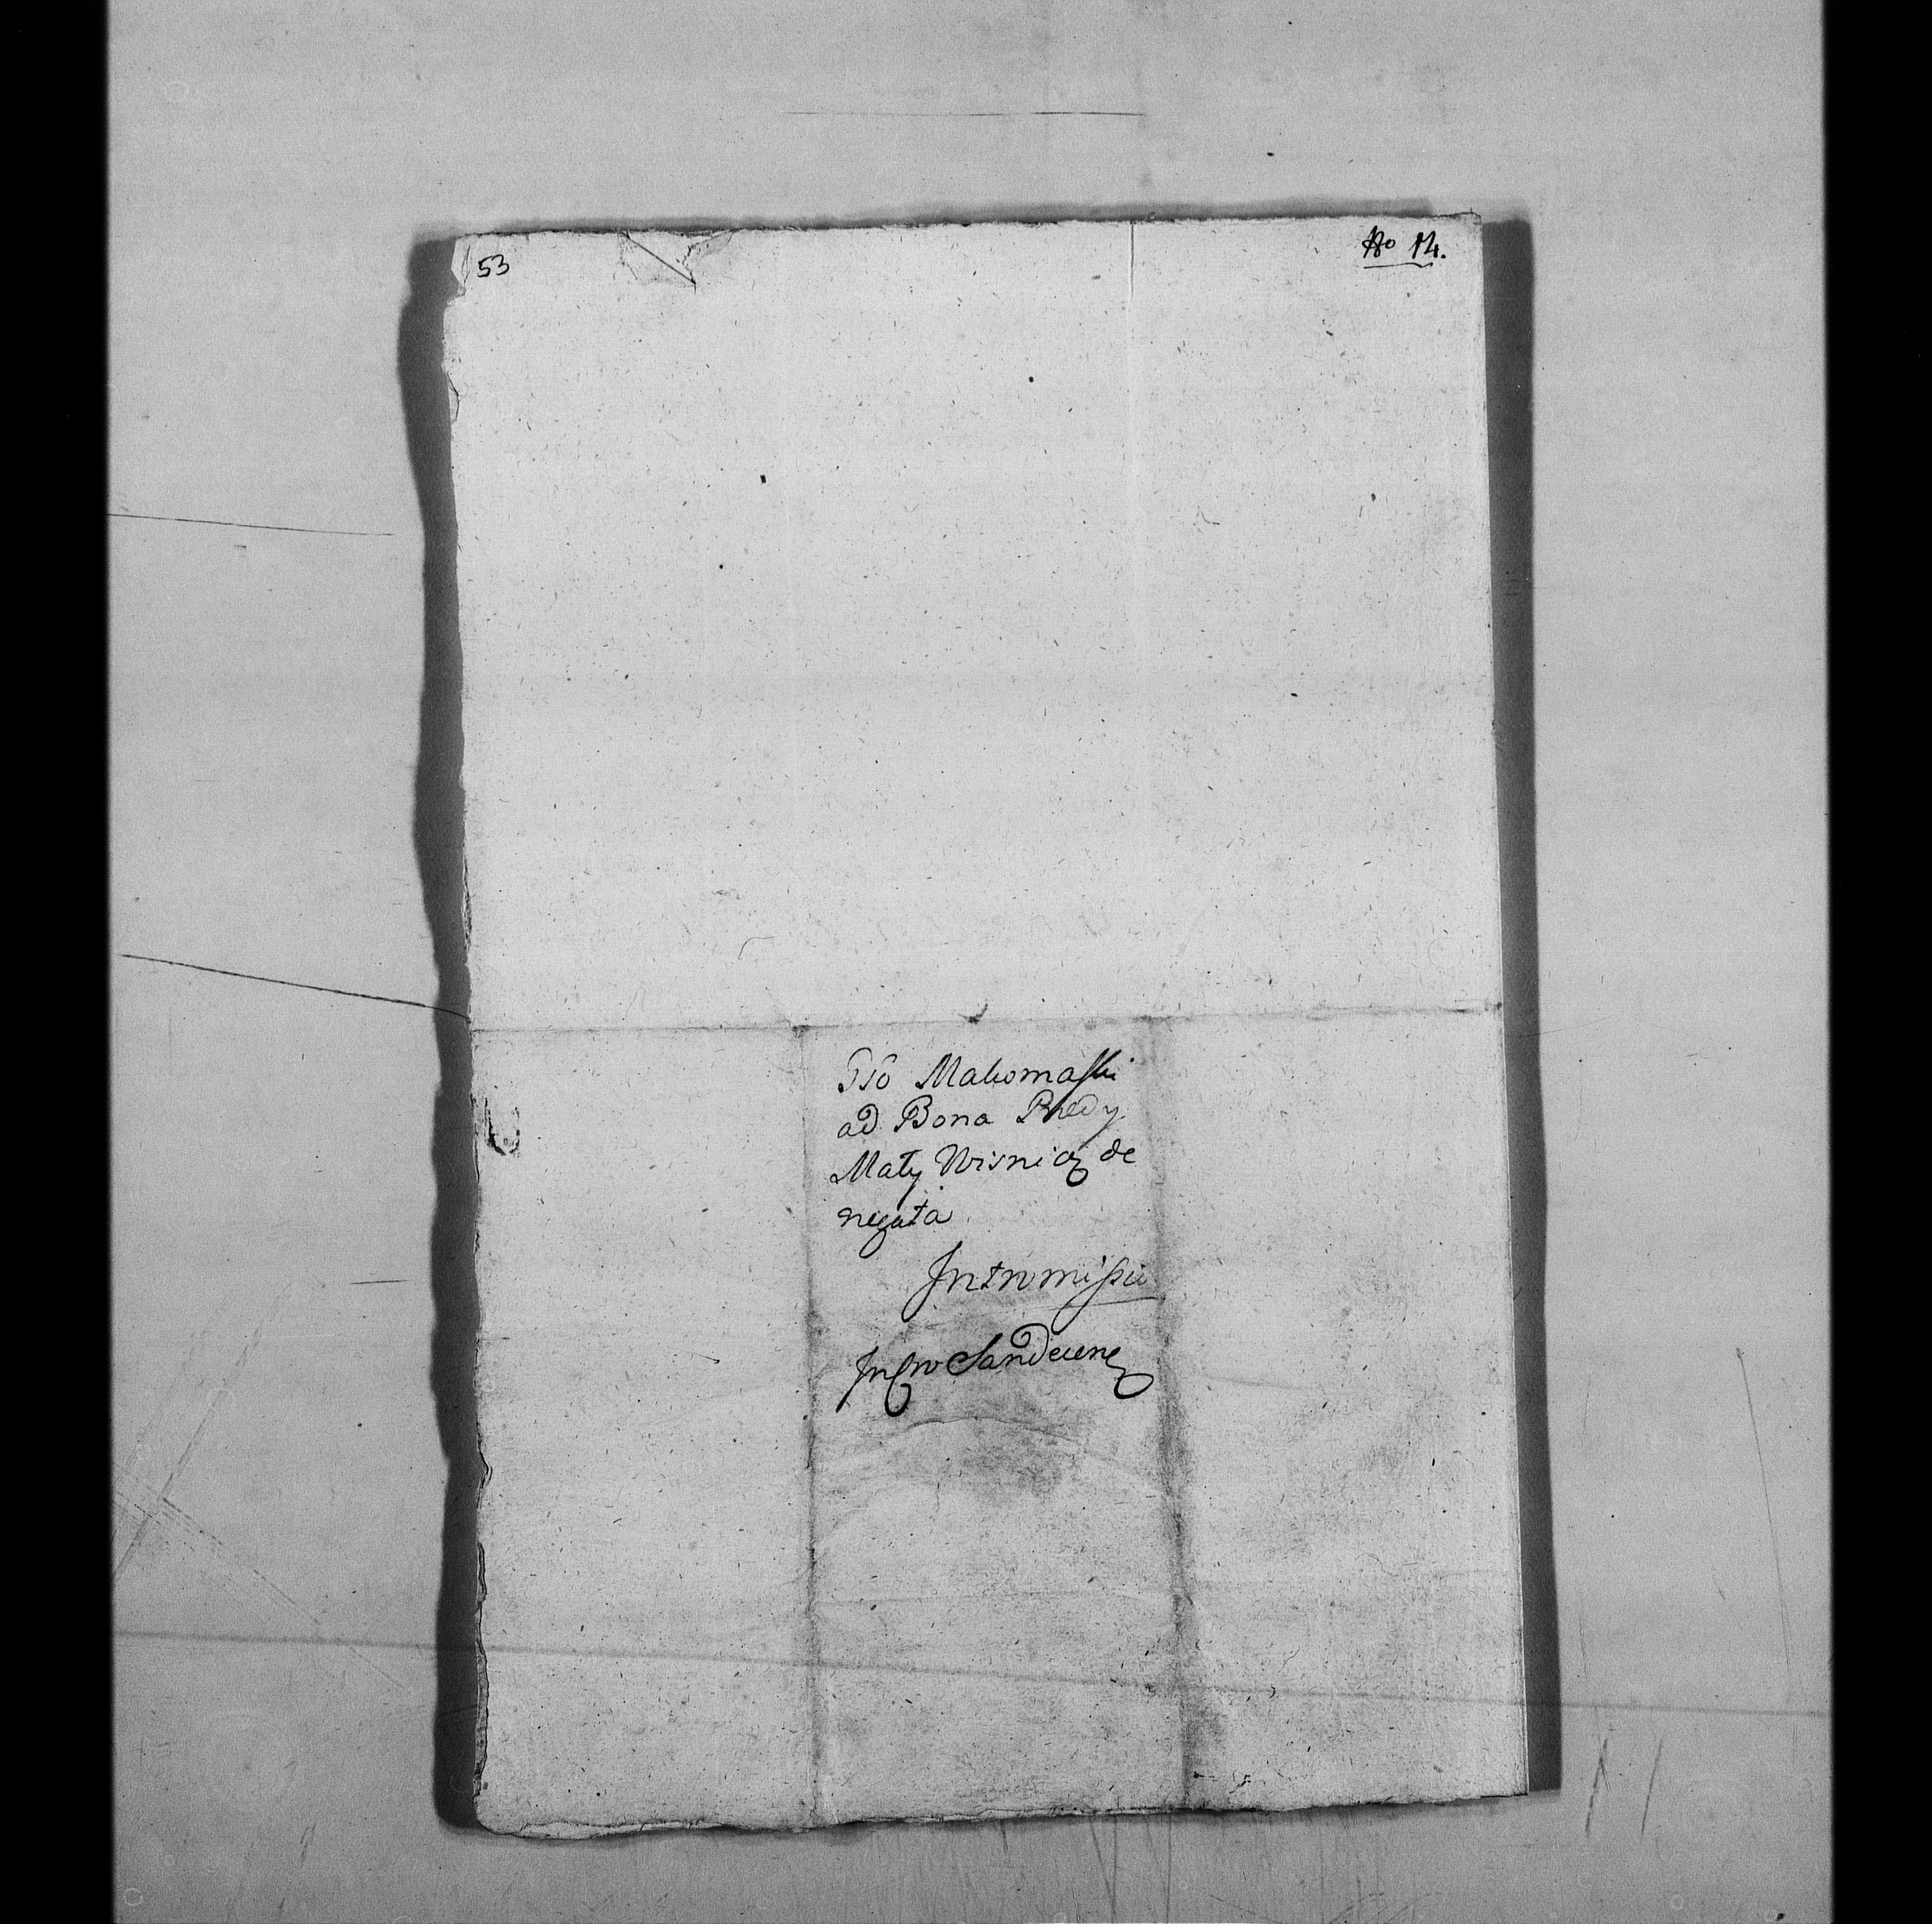 53
No 14.
Gso Makomaski
ad Bona Rzedy
Mały Wisnicz de
negata
Intromissio
In Cro Sandecen